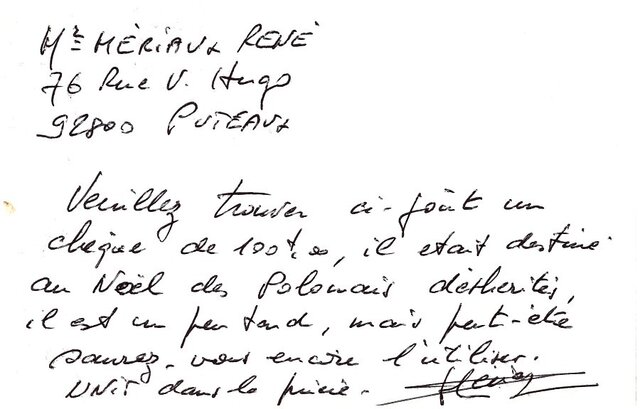 Mr MÉRIAUX RENÉ
76 Rue V. Hugo
92800 PUTEAUX
Veuillez trouver ci-joint un
chèque de 100f,oo, il était destiné
au Noël des Polonais déshérités,
il est un peu tard, mais peut-être
saurez-vous encore l'utiliser.
UNIT dans la prière.